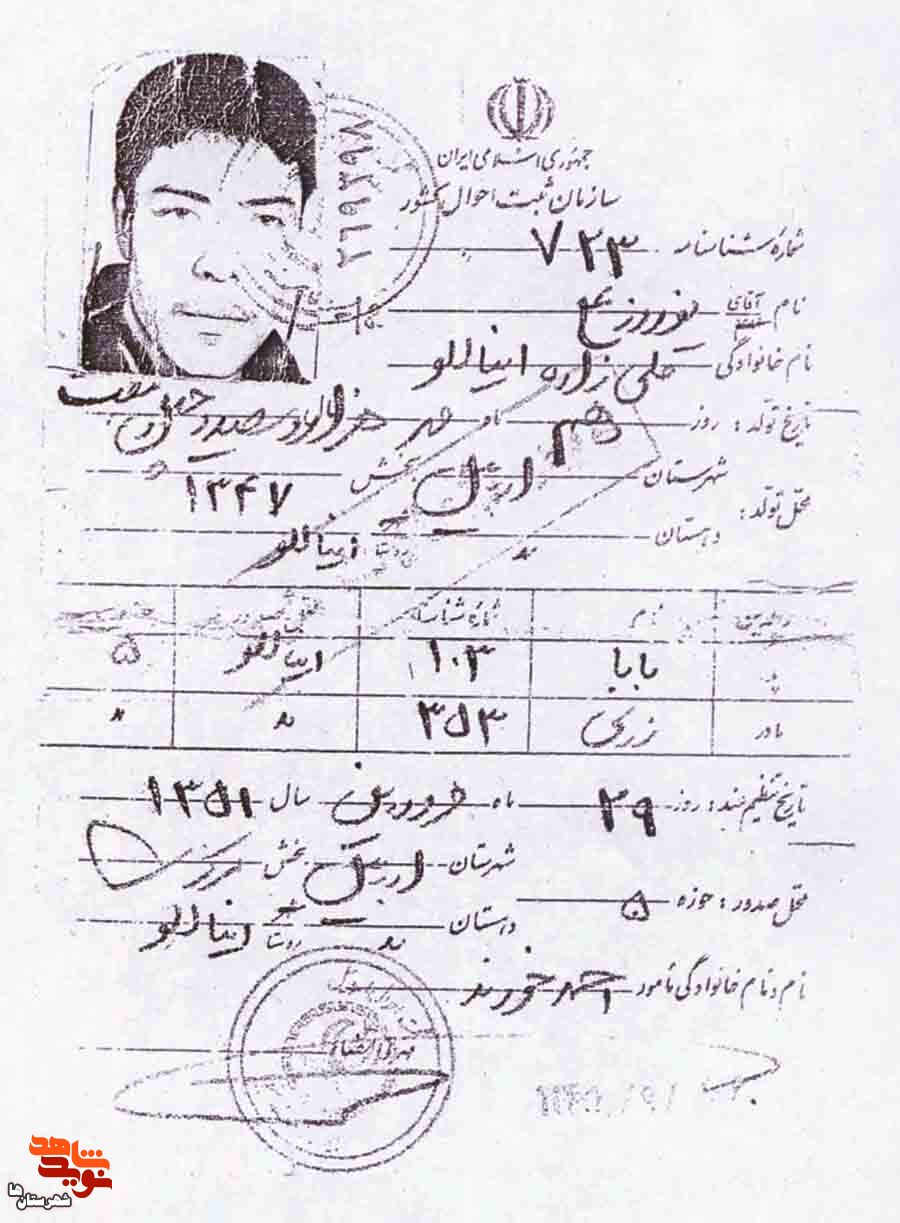 جمهوری اسلامی ایران
سازمان ثبت احوال کشور
شماره شناسنامه ۷۲۳
نام آقای نوروز
نام خانوادگی علی زاده اینااللو
تاریخ تولد: روز دهم ماه مهر هزار و سیصد و چهل و هفت
محل تولد: شهرستان اردبیل بخش
۱۳۴۷
دهستان " روستا اینااللو
والدین نام شماره شناسنامه
پدر بابا ۱۰۳ اینااللو ۵
مادر زری ۳۵۳ " "
تاریخ تنظیم سند: روز ۲۹ ماه فروردین سال ۱۳۵۱
محل صدور: حوزه ۵ شهرستان اردبیل بخش مرکزی
دهستان " روستا اینااللو
نام و نام خانوادگی مأمور احمد
مهر و امضاء
نوید شاهد
شهرستان‌ها